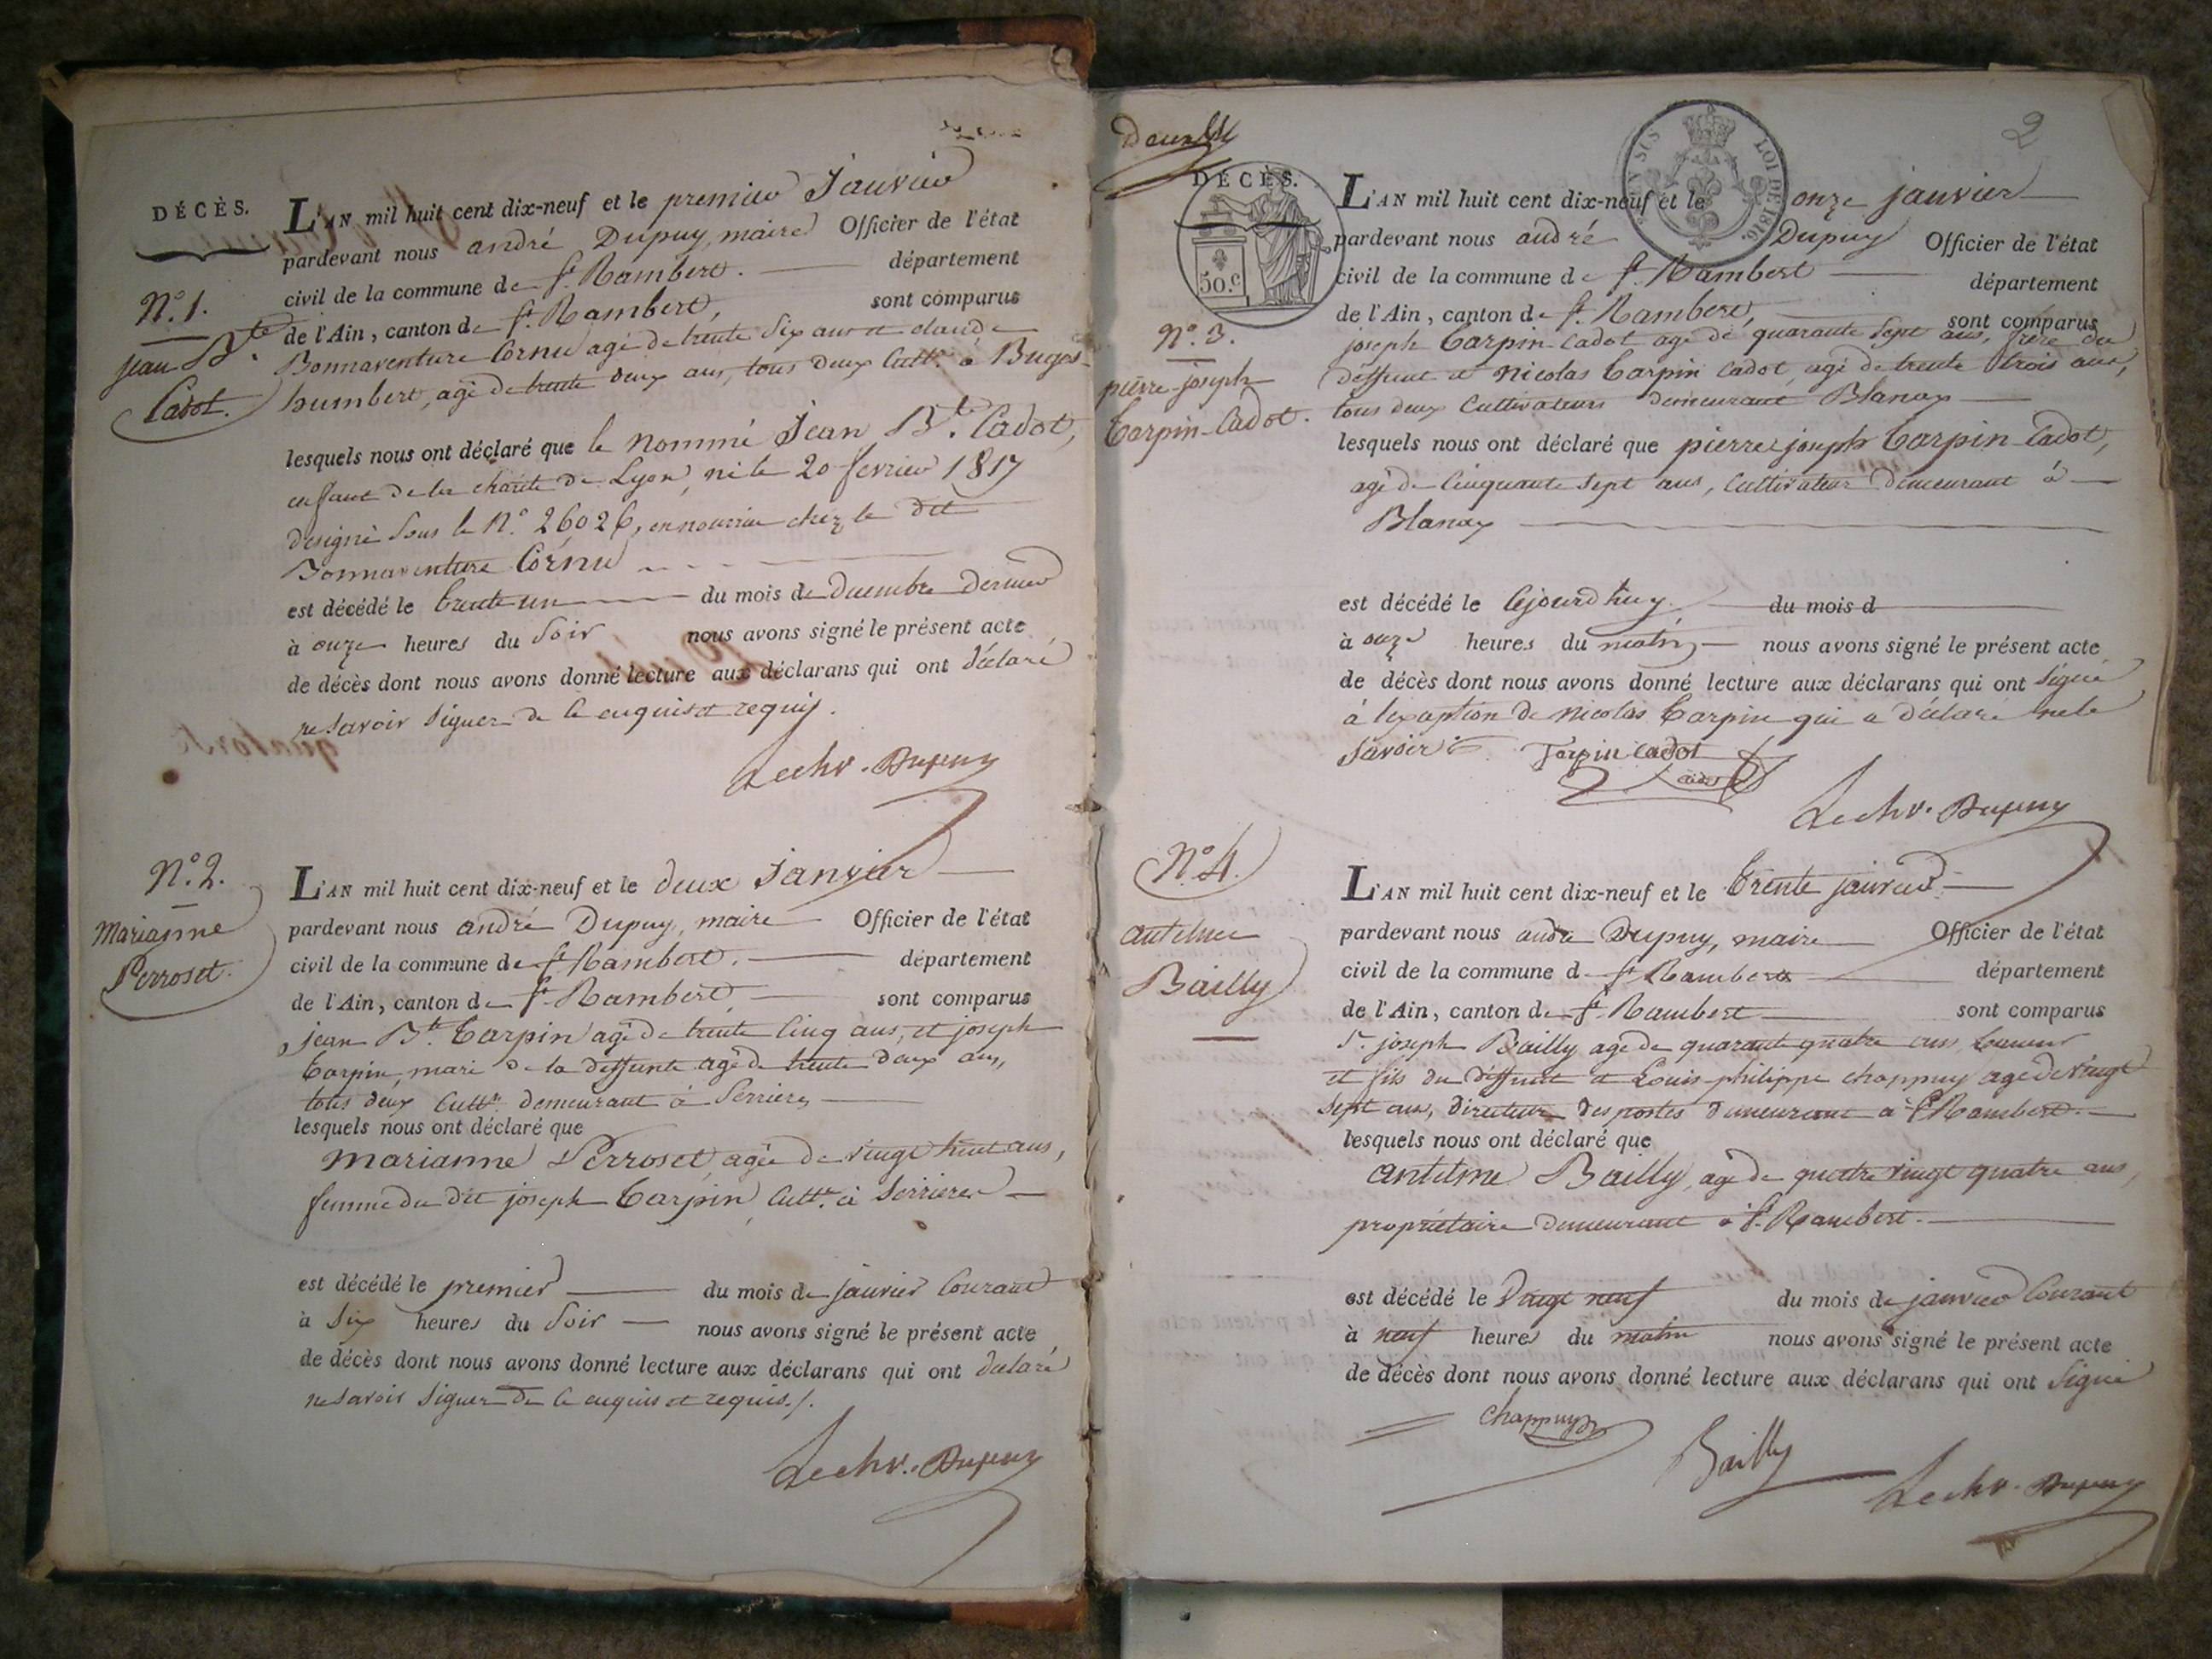 DÉCÈS.
N.° 1.
jean B.te
Cadot.
L'AN mil huit cent dix-neuf et le premier Janvier
pardevant nous andré Dupuy, maire Officier de l'état
civil de la commune de St. Rambert. département
de l'Ain, canton de St. Rambert, sont comparus
Bonnaventure Cornu agé de trente Six ans et claude
humbert, agé de trente deux ans, tous deux Cultr. à Buges
lesquels nous ont déclaré que le nommé Jean B.te Cadot,
enfant de la charité de Lyon, né le 20 fevrier 1817
designé Sous le N.° 26026, en nourrice chez le dit
Bonnaventure Cornu
est décédé le trente un du mois de decembre dernier
à onze heures du Soir nous avons signé le présent acte
de décès dont nous avons donné lecture aux déclarans qui ont déclaré
ne Savoir Signer de ce enquis et requis.
Lechr. Dupuy
N.° 2.
Marianne
Perroset.
L'AN mil huit cent dix-neuf et le deux Janvier
pardevant nous andré Dupuy, maire Officier de l'état
civil de la commune de St. Rambert. département
de l'Ain, canton de St. Rambert sont comparus
Jean B.te Carpin agé de trente Cinq ans, et joseph
Carpin, mari de la deffunte agé de trente deux ans,
tous deux Cultr. demeurant à Serrieres
lesquels nous ont déclaré que
Marianne Perroset, agée de vingt huit ans,
femme du dit joseph Carpin Cultr. à Serrieres
est décédé le premier du mois de janvier Courant
à Six heures du Soir nous avons signé le présent acte
de décès dont nous avons donné lecture aux déclarans qui ont déclaré
ne Savoir Signer de ce enquis et requis./.
Lechr. Dupuy
2
DÉCÈS.
50.c
LOI DE 1816.
N.° 3.
pierre-joseph
Carpin-Cadot.
L'AN mil huit cent dix-neuf et le onze janvier
pardevant nous andré Dupuy Officier de l'état
civil de la commune de St. Rambert département
de l'Ain, canton de St. Rambert, sont comparus
joseph Carpin-Cadot agé de quarante Sept ans, frère du
deffunt et Nicolas Carpin Cadot, agé de trente trois ans,
tous deux Cultivateurs demeurant Blanaz
lesquels nous ont déclaré que pierre joseph Carpin-Cadot,
agé de Cinquante Sept ans, Cultivateur demeurant à
Blanaz
est décédé le Cejourd'huy du mois d
à onze heures du matin nous avons signé le présent acte
de décès dont nous avons donné lecture aux déclarans qui ont Signé
à l'exception de Nicolas Carpin qui a déclaré ne le
Savoir
Carpin Cadot
Lechr. Dupuy
N.° 4.
antelme
Bailly
L'AN mil huit cent dix-neuf et le trente janvier
pardevant nous andré Dupuy, maire Officier de l'état
civil de la commune de St. Rambert département
de l'Ain, canton de St. Rambert sont comparus
Sr. joseph Bailly agé de quarante quatre ans,
et fils du deffunt et Louis-philippe chappuy agé de vingt
Sept ans, directeur des postes demeurant à St. Rambert.
lesquels nous ont déclaré que
antelme Bailly, agé de quatre vingt quatre ans,
propriétaire demeurant à St. Rambert.
est décédé le vingt neuf du mois de janvier Courant
à neuf heures du matin nous avons signé le présent acte
de décès dont nous avons donné lecture aux déclarans qui ont Signé
chappuy
Bailly
Lechr. Dupuy